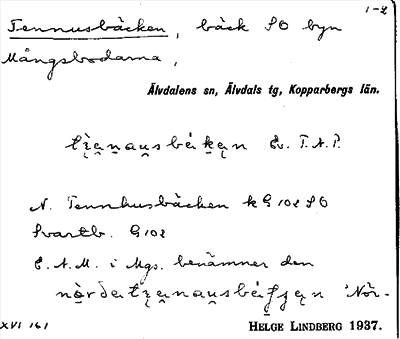 1-2
Tennusbäcken, bäck SO byn
Mångsbodarna,
Älvdalens sn, Älvdals tg, Kopparbergs län.
Ev. T.A.P.
N. Tennhusbäcken k G 102 SO
Svartb. G 102
E.A.M. i Mgs. benämner den
'Nör-
XVI 161
HELGE LINDBERG 1937.